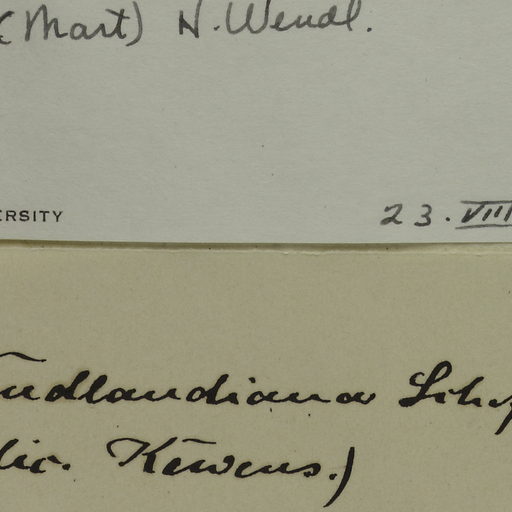 (Mart) H. Wendl.
ERSITY
23. VIII
endlandiana
Kewens.)